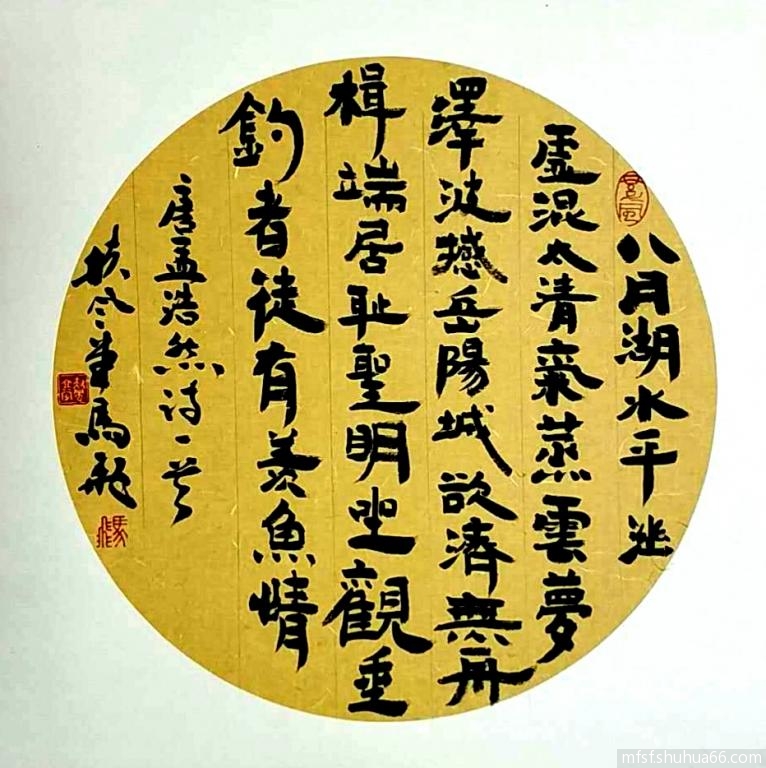 八月湖水平涵
虚混太清氣蒸雲夢
澤波撼岳陽城欲濟無舟
楫端居耻聖明坐觀垂
釣者徒有羡魚情
唐孟浩然诗一首
扶風堂馬
mfsf.shuhua66.com